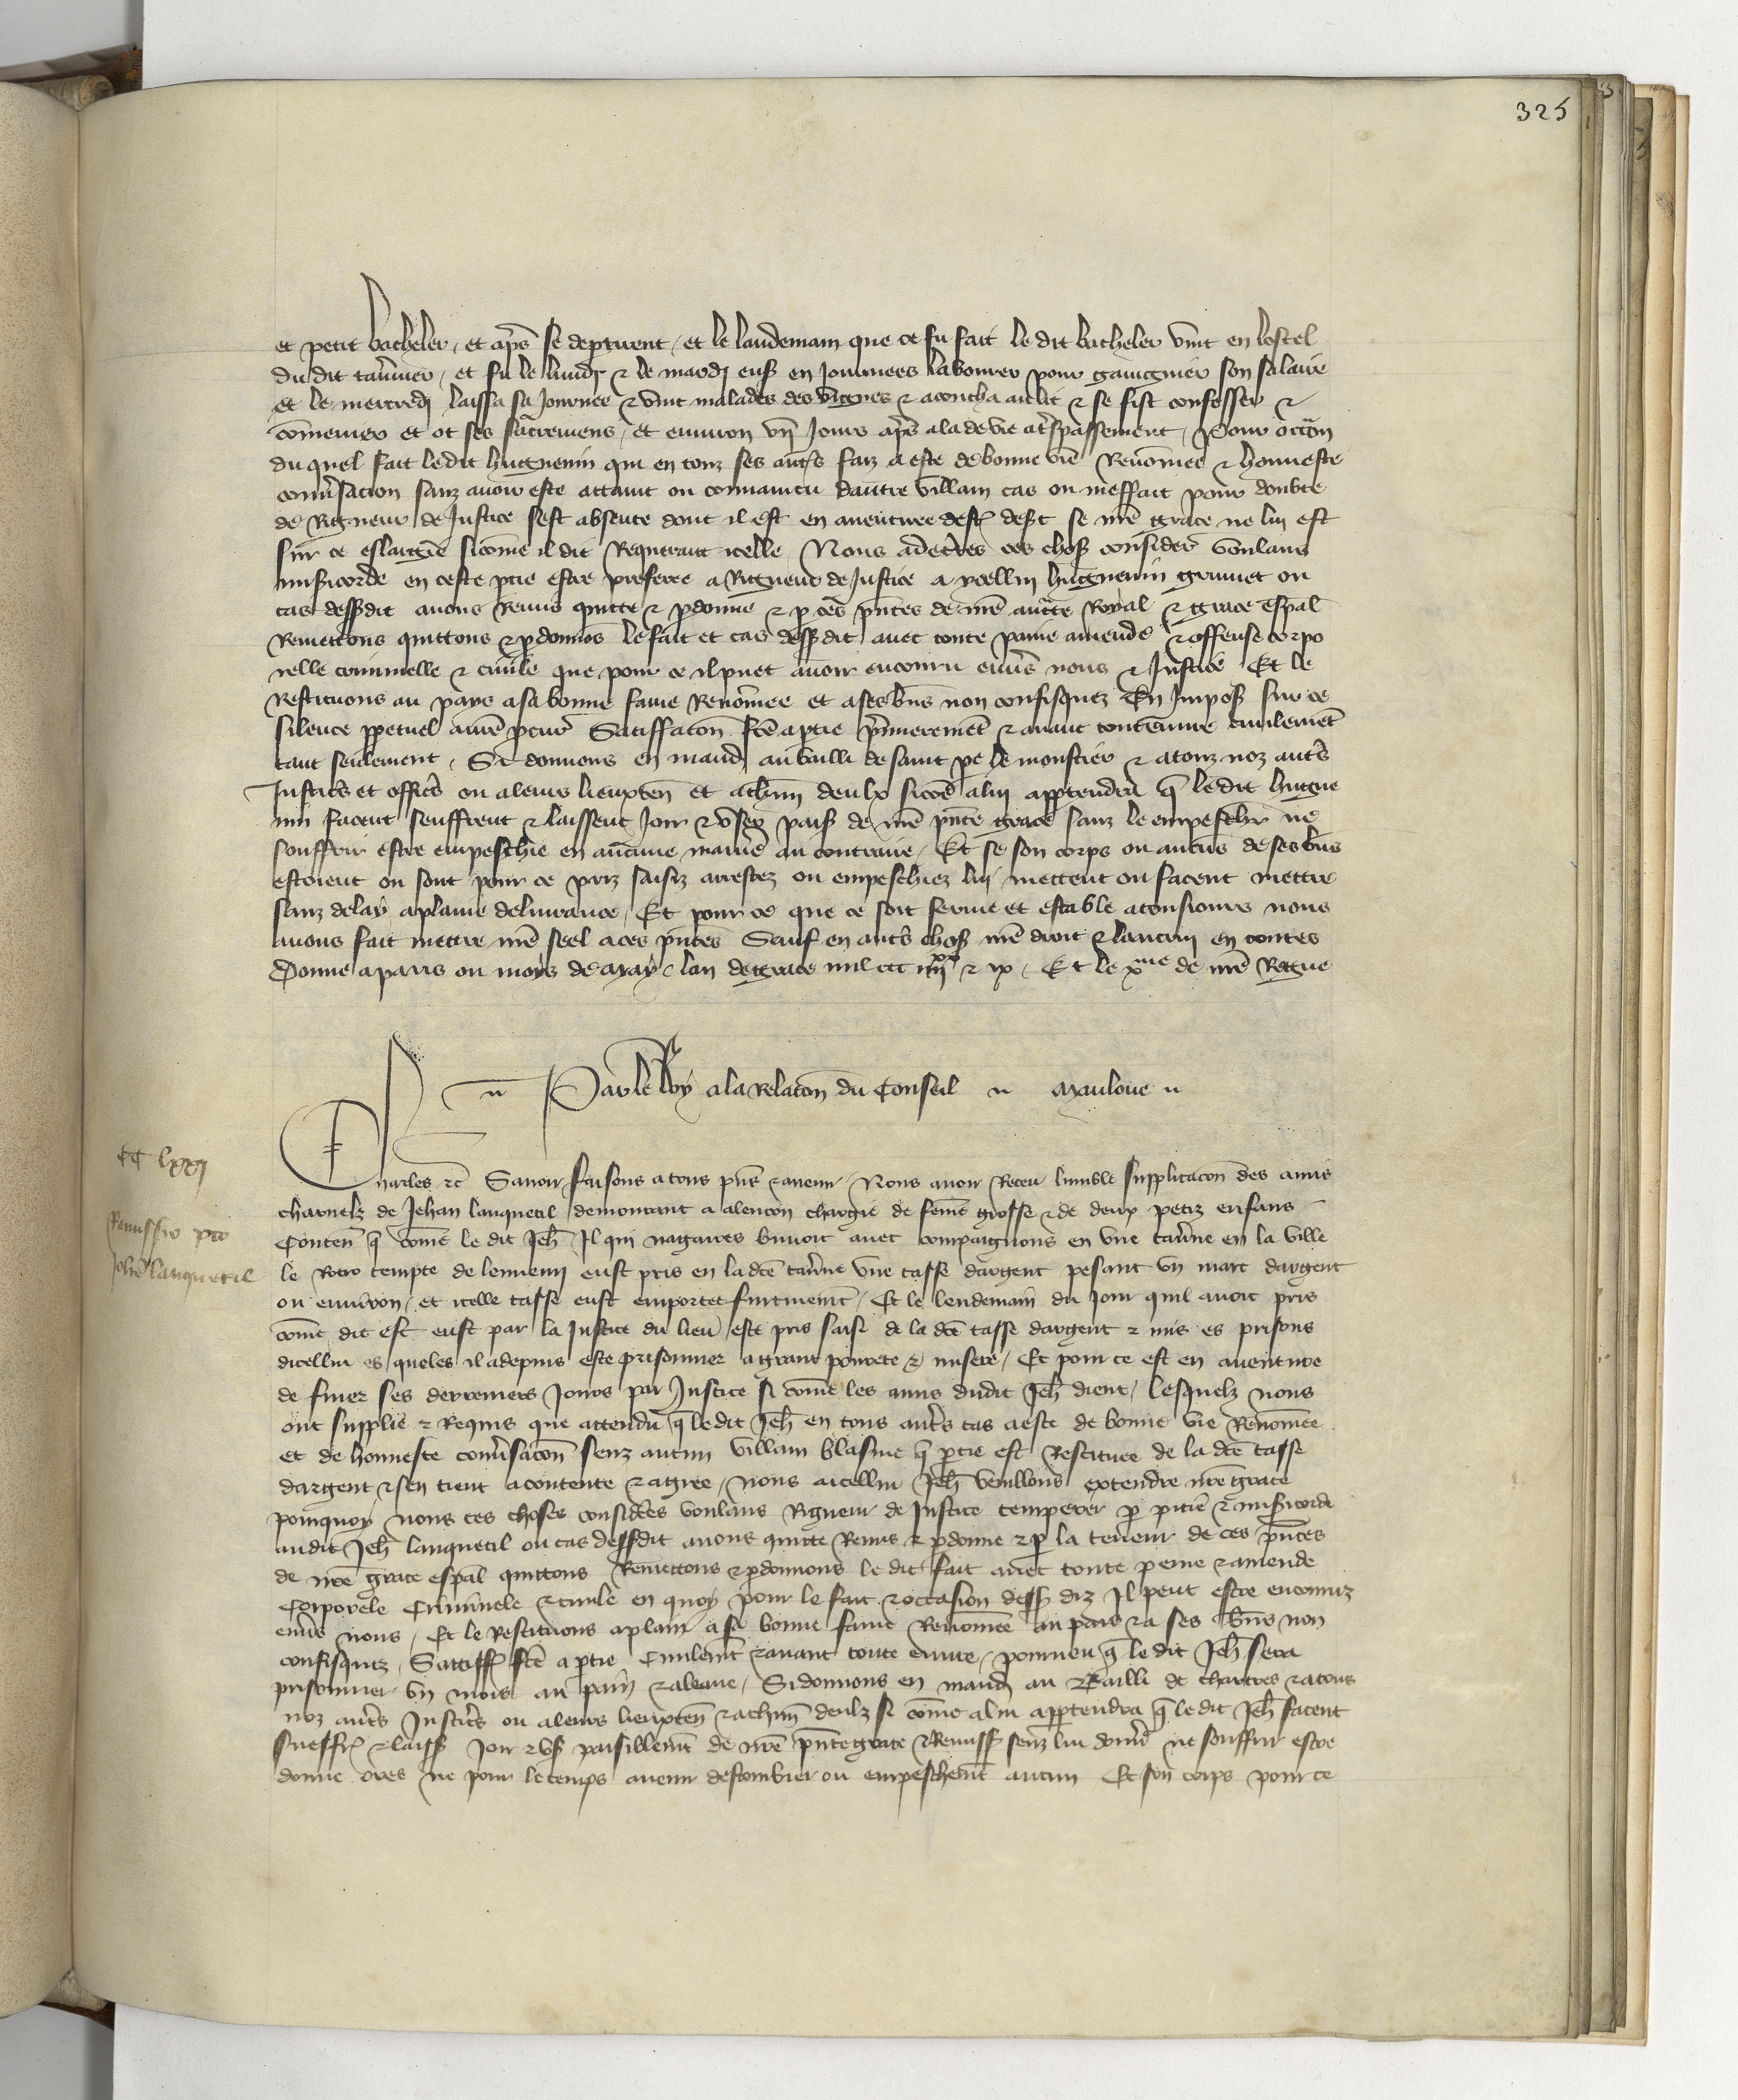 325
et petit bacheler, et apres se deptirent, et le landemain que ce fu fait le dit bacheler vint en lostel
du dit tavernier, et fu le lundi & le mardi ens en journees labourer pour gaaignier son salaire
et le mercredi laissa sa journee & vint malades des vignes & acoucha au lit & se fist confesser &
comenier et ot ses sacremens, et environ vn jours apres ala de vie a trespassement, Pour occon
du quel fait le dit huguenin qui en touz ses autres faiz a este de bonne vie Renomee & honneste
conversacion sanz avoir este attaint ou convaincu dautre villain cas ou meffait pour doubte
de Rigueur de justice sest absente dont il est en aventure destre desert se nre grace ne lui est
sur ce eslargie sicome il dit Requerant icelle Nous adecertes ces choses considerees voulans
misericorde en ceste ptie estre preferee a Rigueur de justice a ycellui huguenin gruniet ou
cas dessusdit avons Remis quitte & pdonne & p ces pntes de nre auctte Royal & grace espal
Remettons quittons & pdonnons le fait et cas dessusdit avec toute paine amende & offense corpo
relle criminelle & civile que pour ce il puet avoir encouru envers nous & justice Et le
Restituons au pays a sa bonne fame Renomee et a ses biens non confisquez En imposant sur ce
silence ppetuel a nre pcureur Satiffacon fcte a ptie premierement & avant toute euvre civilement
tant seulement, Si donnons en mandement au bailli de saint pere le monstier & a touz noz autres
Justiciers et officiers ou a leurs lieuxten et a chun deulx sicome a lui appartendra q le dit hugue
nin facent seuffrent & laissent joir & user paisiblement de nre pnte grace sanz le empescher ne
souffrir estre empeschie en aucune maniere au contraire, Et se son corps ou aucuns de ses biens
estoient ou sont pour ce priz saisiz arrestez ou empeschiez lui mettent ou facent mettre
sanz delay a plaine delivrance, Et pour ce que ce soit ferme et estable a tousjours nous
avons fait mettre nre seel a ces pntes Sauf en autres choses nre droit & lautrui en toutes
Donne a paris ou moys de may lan de grace mil ccc iiij xx & ix, Et le ixme de nre Regne
Par le Roy a la Relacon du Conseil Mauloue
CC lxxj
Charles &c Savoir faisons a tous pns & avenir Nous avoir Receu lumble supplicacon des amis
charnelz de Jehan lanquetil demourant a alencon chargie de feme grosse & de deux petiz enfans
Remissio pro
Johe lanquetil
Conten q come le dit Jeh Il qui nagaires buvoit avec compaignons en une taverne en la ville
le Rotro tempte de lennemi eust pris en la dce taverne une tasse dargent pesant un marc dargent
ou environ, et icelle tasse eust emportee furtivement, Et le lendemain du jour quil avoit pris
come dit est eust par la justice du lieu este pris saisi de la dce tasse dargent & mis es prisons
dicellui es queles il a depuis este prisonnier a grant povrete & misere, Et pour ce est en aventure
de finer ses derreniers jours par justice si come les amis dudit Jeh dient, lesquelz nous
ont supplie & Requis que attendu q le dit Jeh en tous autres cas a este de bonne vie Renomee
et de honneste conversacon senz aucun villain blasme q ptie est Restituee de la dce tasse
dargent & sen tient a contente & agree, nous a icellui Jeh veuillons extendre nre grace
pourquoy nous ces choses considerees voulans Rigueur de justice temperer p pitie & misericorde
audit Jeh lanquetil ou cas dessusdit avons quitte Remis & pdonne & p la teneur de ces pntes
de nre grace espal quittons Remettons & pdonnons le dit fait avec toute peine & amende
Corporele Criminele & civile en quoy pour le fait & occasion dessus diz Il peut estre encouruz
envers nous, Et le Restituons a plain a sa bonne fame Renomee au pais & a ses biens non
confisquez, Satiffcon fcte a ptie Civilement & avant toute euvre, pourveu q le dit Jeh sera
prisonnier un mois au pain & a leaue, Si donnons en mandement au Bailli de chartres & a tous
noz autres Justiciers ou a leurs lieuxten & a chun deulz si come a lui appartendra q le dit Jeh facent
sueffrent & laissent joir & user paisiblement de nre pnte grace & Remission senz lui donner ne souffrir estre
donne ores ne pour le temps avenir destourbier ou empeschement aucun Et son corps pour ce